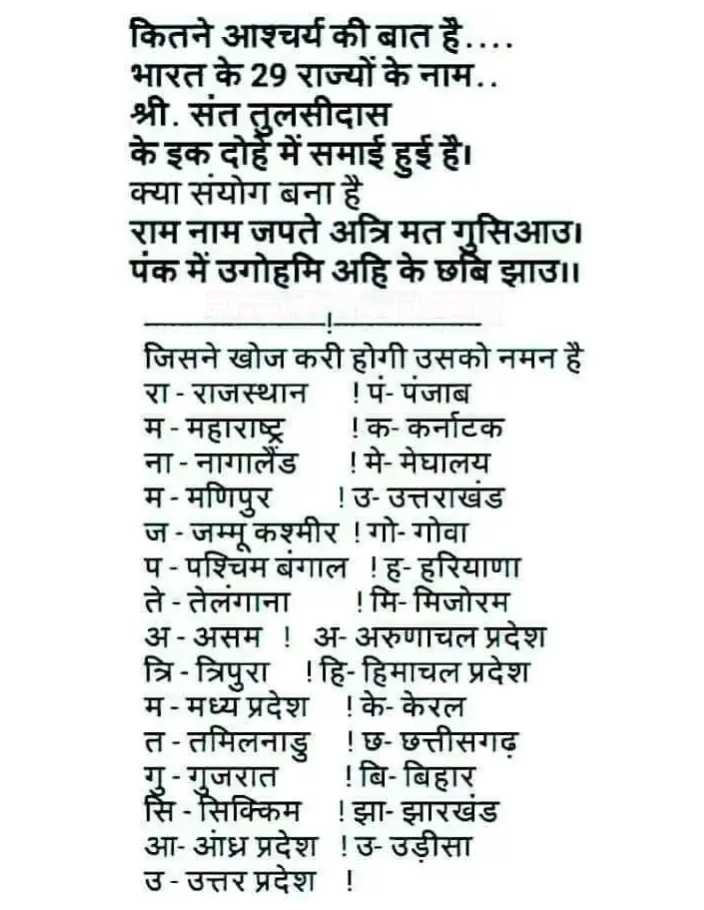 कितने आश्चर्य की बात है....
भारत के 29 राज्यों के नाम..
श्री. संत तुलसीदास
के इक दोहे में समाई हुई है।
क्या संयोग बना है
राम नाम जपते अत्रि मत गुसिआउ।
पंक में उगोहमि अहि के छबि झाउ।।
_________!_________
जिसने खोज करी होगी उसको नमन है
रा - राजस्थान ! पं- पंजाब
म - महाराष्ट्र ! क- कर्नाटक
ना - नागालैंड ! मे- मेघालय
म - मणिपुर ! उ- उत्तराखंड
ज - जम्मू कश्मीर ! गो- गोवा
प - पश्चिम बंगाल ! ह- हरियाणा
ते - तेलंगाना ! मि- मिजोरम
अ - असम ! अ- अरुणाचल प्रदेश
त्रि - त्रिपुरा ! हि- हिमाचल प्रदेश
म - मध्य प्रदेश ! के- केरल
त - तमिलनाडु ! छ- छत्तीसगढ़
गु - गुजरात ! बि- बिहार
सि - सिक्किम ! झा- झारखंड
आ- आंध्र प्रदेश ! उ- उड़ीसा
उ - उत्तर प्रदेश !